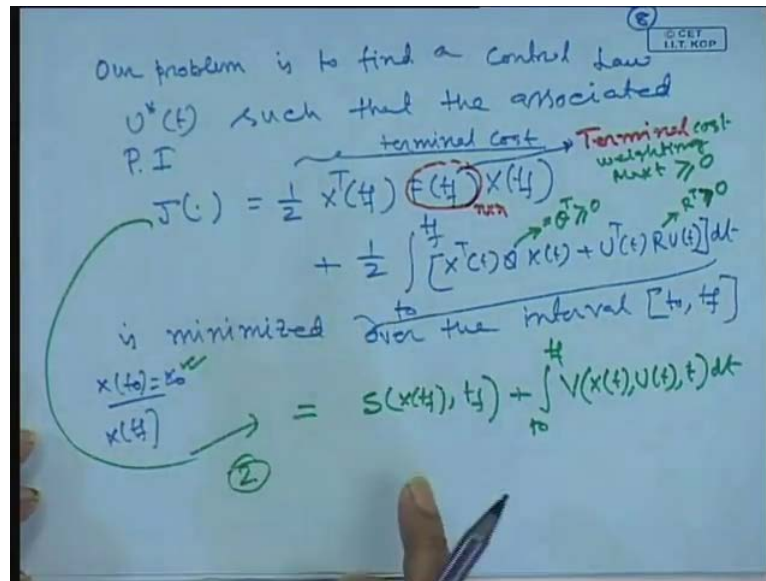 8
© CET
I.I.T. KGP
Our problem is to find a control Law
U*(t) such that the associated
P.I terminal cost
J(.) = 1/2 X^T(tf) F(tf) X(tf) Terminal cost
weighting
Mat ≥ 0
nxn
+ 1/2 ∫_{t0}^{tf} [X^T(t) Q X(t) + U^T(t) R U(t)] dt
= Q^T ≥ 0
is minimized over the interval [t0, tf]
x(t0) = x0
x(tf)
= S(x(tf), tf) + ∫_{t0}^{tf} V(x(t), U(t), t) dt
2